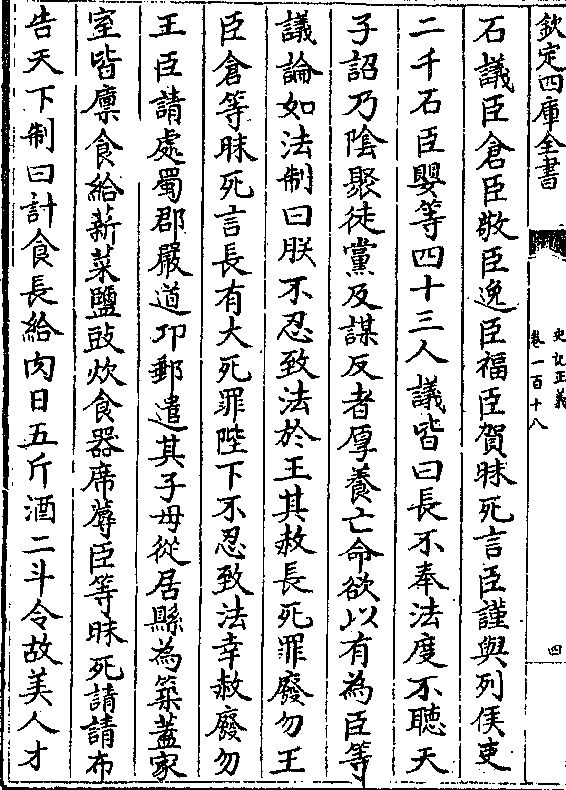 欽定四庫全書
史記正義
卷一百十八
四
石議臣倉臣敬臣逸臣福臣賀昧死言臣謹與列侯吏
二千石臣嬰等四十三人議皆曰長不奉法度不聽天
子詔乃陰聚徒黨及謀反者厚養亡命欲以有為臣等
議論如法制曰朕不忍致法於王其赦長死罪廢勿王
臣倉等昧死言長有大死罪陛下不忍致法幸赦廢勿
王臣請處蜀郡嚴道卭郵遣其子母從居縣為築蓋家
室皆廩食給薪菜鹽豉炊食器席蓐臣等昧死請請布
告天下制曰計食長給肉日五斤酒二斗令故美人才